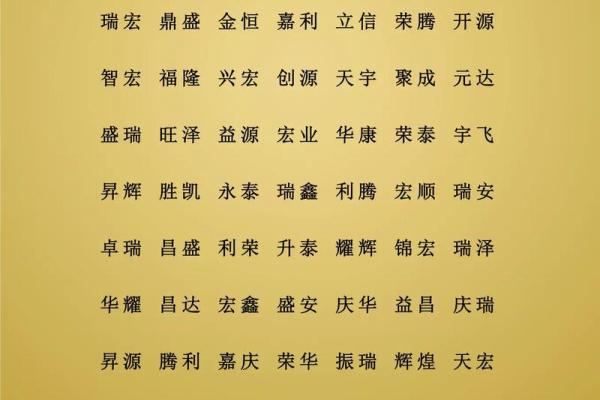 瑞宏 鼎盛 金恒 嘉利 立信 荣腾 开源
智宏 福隆 兴宏 创源 天宇 聚成 元达
盛瑞 旺泽 益源 宏业 华康 荣泰 宇飞
昇辉 胜凯 永泰 瑞鑫 利腾 宏顺 瑞安
卓瑞 昌盛 利荣 升泰 耀辉 锦宏 瑞泽
华耀 昌达 宏鑫 盛安 庆华 益昌 庆瑞
昇源 腾利 嘉庆 荣华 振瑞 辉煌 天宏